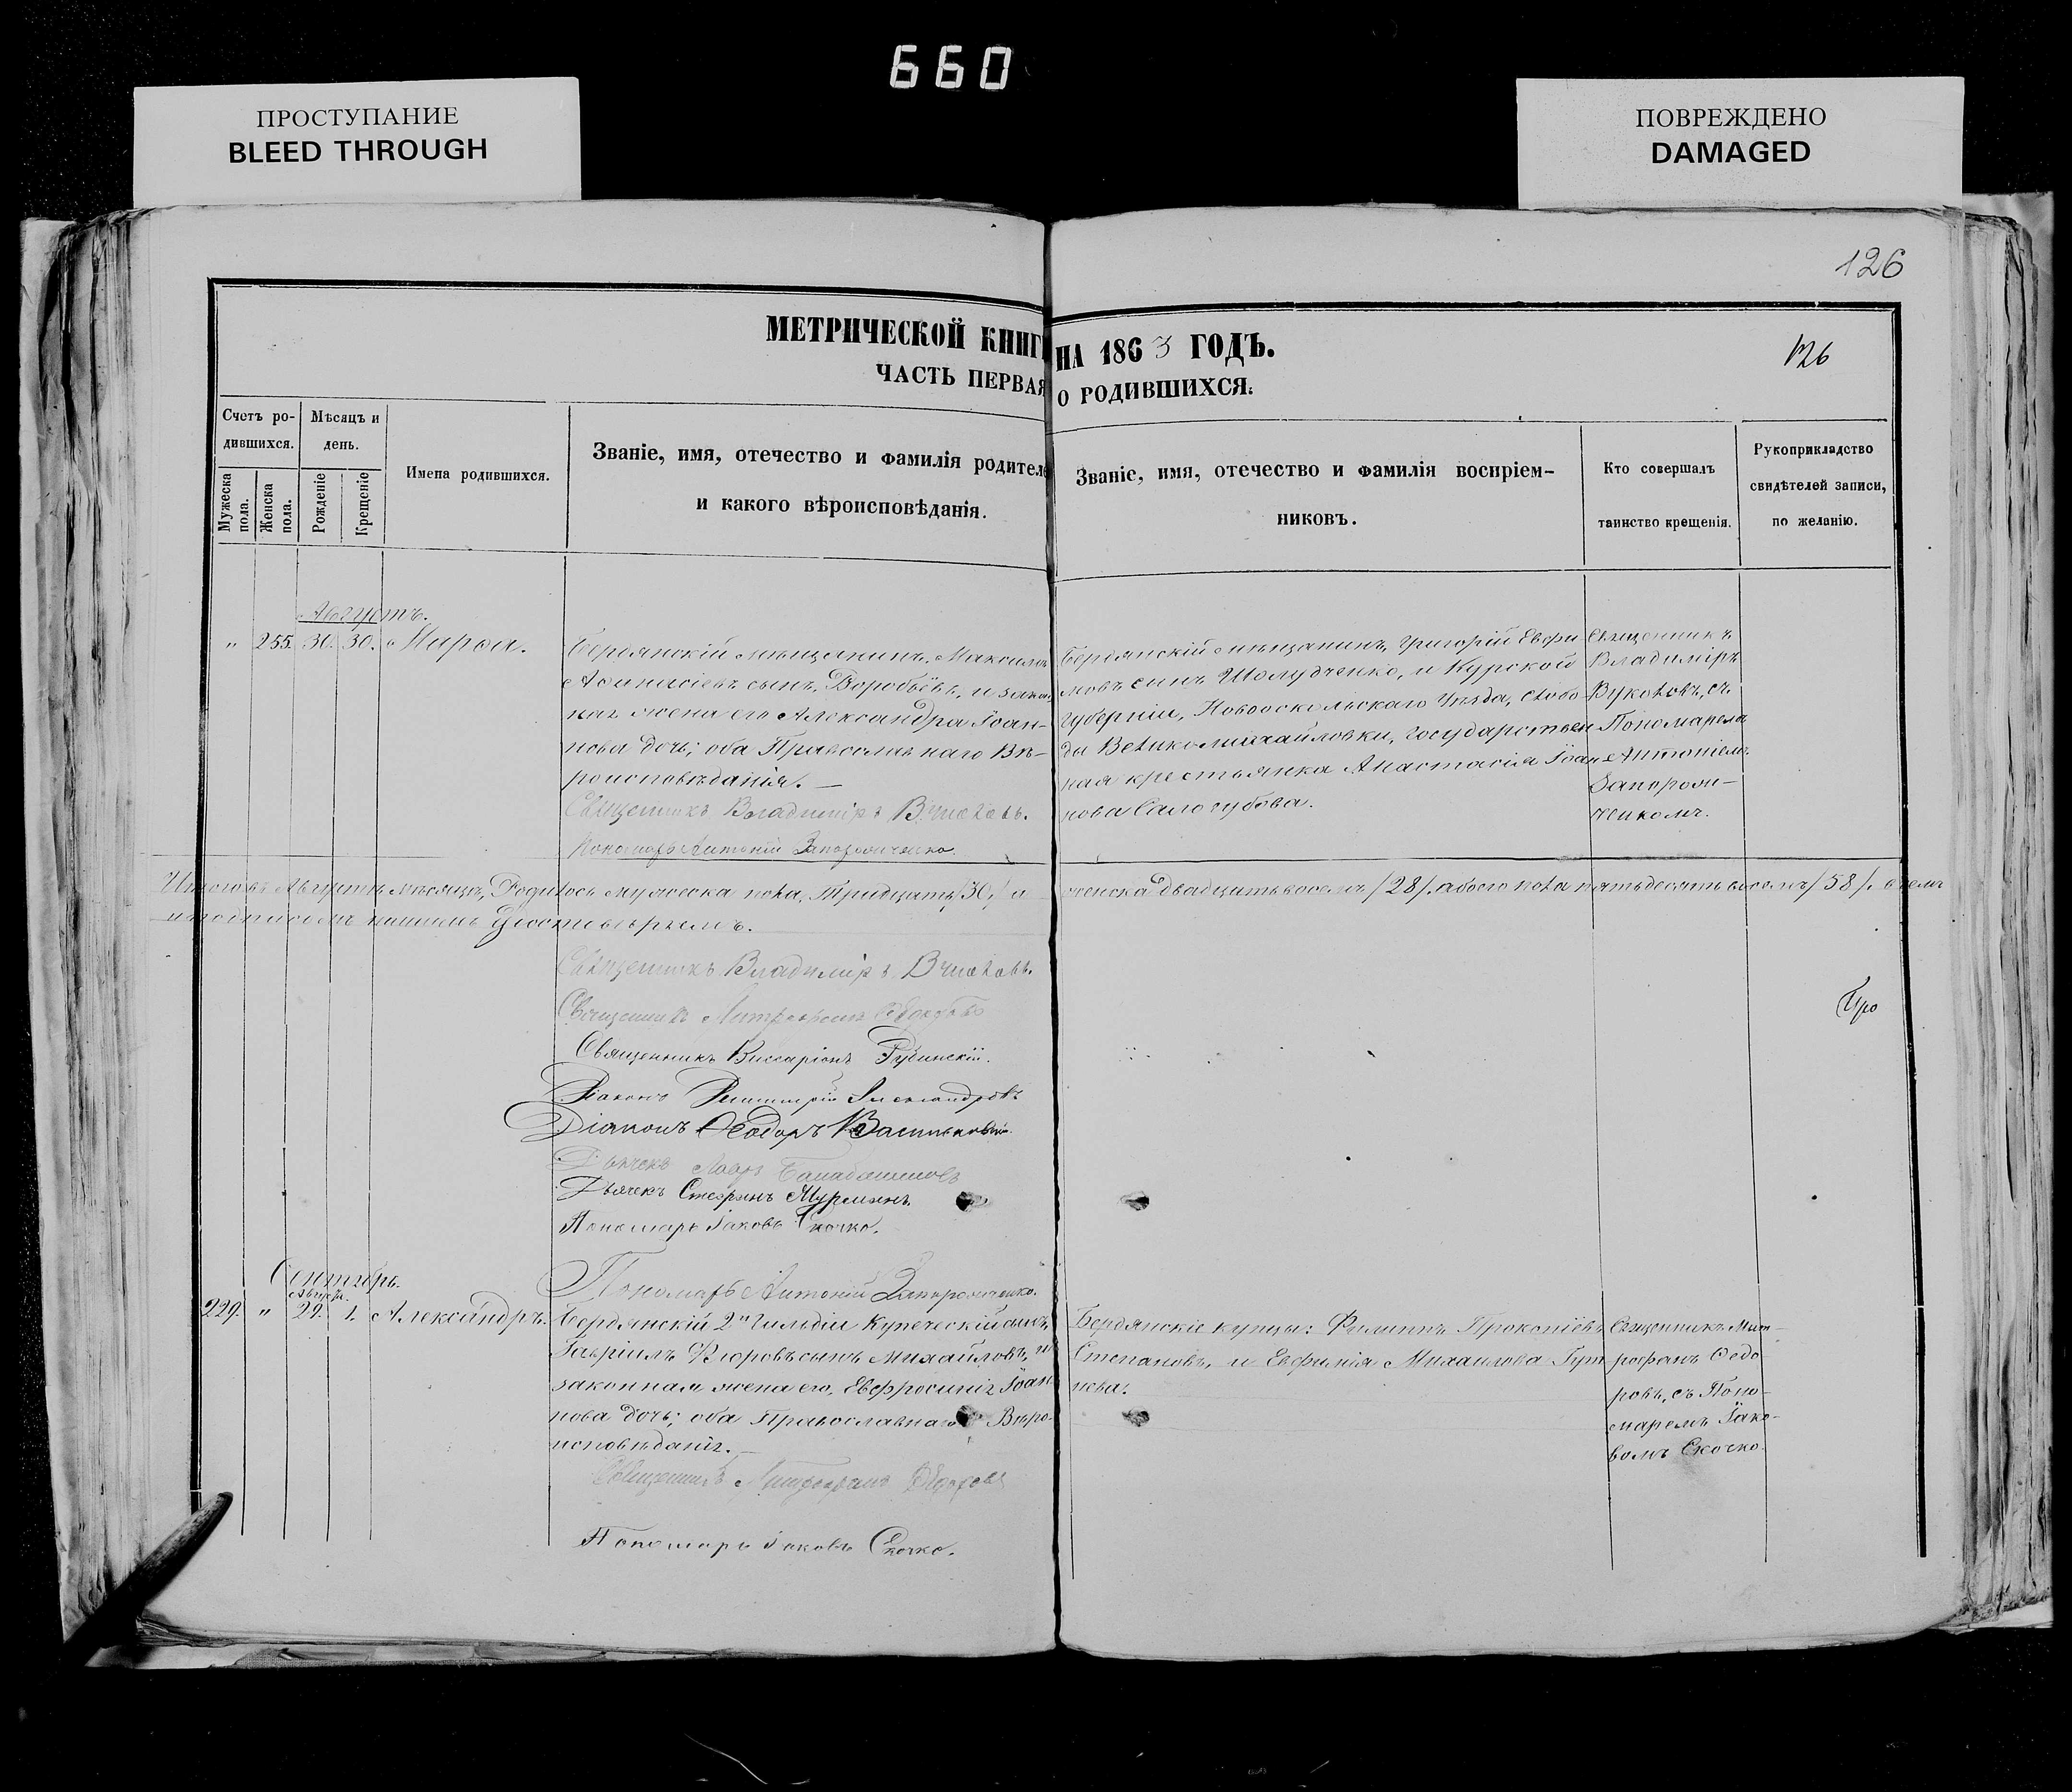 660
ПРОСТУПАНИЕ
BLEED THROUGH
ПОВРЕЖДЕНО
DAMAGED
126
МЕТРИЧЕСКОЙ КНИГ НА 1863 ГОДЪ.
126
ЧАСТЬ ПЕРВАЯ О РОДИВШИХСЯ.
Счетъ ро-
дившихся.
Мужеска пола.
Женска пола.
Мѣсяцъ и
день.
Рожденіе
Крещеніе
Имена родившихся.
Званіе, имя, отечество и фамилія родителе
и какого вѣроисповѣданія.
Званіе, имя, отечество и фамилія воспріем-
никовъ.
Кто совершалъ
таинство крещенія.
Рукоприкладство
свидѣтелей записи,
по желанію.
Августъ.
" 255. 30. 30. Марѳа.
Бердянскій мѣщанинъ, Максимъ
Аѳанасіевъ сынъ, Воробьёвъ, и закон
ная жена его Александра Іоан-
нова дочь; оба Православнаго Вѣ-
роисповѣданія. —
Священникъ Владиміръ
Пономарь Антоній Запорожченко.
Бердянскій мѣщанинъ, Григорій Евфи
мовъ сынъ Шолудченко, и Курской
губерніи, Новооскольскаго Уѣзда, слобо
ды Великомихайловки, государствен
ная крестьянка Анастасія Іоан
нова Салогубова.
Священникъ
Владиміръ
съ
Пономаремъ
Антоніемъ
Запорож-
ченкомъ.
Итого въ Августѣ мѣсяцѣ, Родилось мужеска пола, тридцать /30/ а женска двадцать восемь /28/. а обоего пола пятьдесятъ восемь /58/. въ чемъ
и подписомъ нашимъ удостовѣряемъ.
Священникъ Владиміръ
Священникъ Митрофанъ Ѳедоровъ
Священникъ Виссаріонъ
Діаконъ Димитрій Александровъ
Діаконъ Ѳеодоръ
Дьячекъ
Дьячекъ Стефанъ Мурманъ.
Пономарь Іаковъ Скочко.
Пономарь Антоній Запорожченко.
Сентябрь.
Августа.
229. " 29. 1. Александръ.
Бердянскій 2й гильдіи Купеческій сынъ,
Гавріилъ сынъ Михайловъ, и
законная жена его, Евфросинія Іоан
нова дочь; оба Православнаго Вѣро-
исповѣданія. —
Священникъ Митрофанъ Ѳедоровъ
Пономарь Іаковъ Скочко.
Бердянскіе купцы: Филиппъ Прокопіевъ
Степановъ, и Евфимія Михаилова
Священникъ Мит-
рофанъ Ѳедо-
ровъ, съ Поно-
маремъ Іако-
вомъ Скочко.